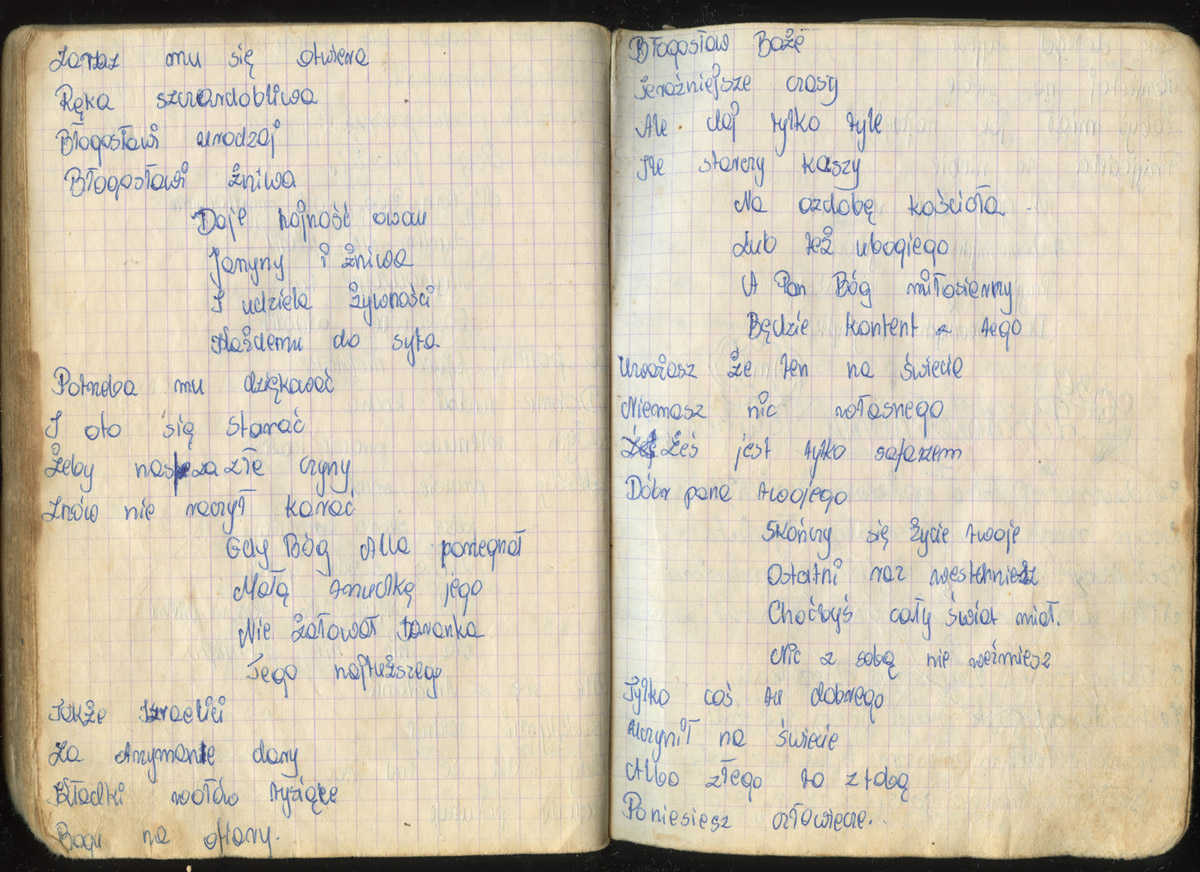 Zaraz mu się otwiera
Ręka szczrardobliwa
Błogosławi urodzaj
Błogosławi żniwa
Daje hojność owau
Jarzyny i żniwa
I udziela żywności
Każdemu do syta
Potrzeba mu dziękować
I oto się starać
Żeby nas za złe czyny
Znów nie raczył karać
Gdy Bóg Alla pożegnał
Małą trzudkę jego
Nie żałował baranka
Tego najtłuższego
Także Izraelici
Za otrzymanie dary
Kładki wołów tysiące
Bogu na ofiary.
Błogosław Boże
Teraźniejsze czasy
Ale daj tylko tyle
Ile starczy kaszy
Na ozdobę kościoła
Lub też ubogiego
A Pan Bóg miłosierny
Będzie kontent z tego
Uważasz że ten na świecie
Niemasz nic własnego
Żeś jest tylko szafarzem
Dóbr pana twojego
Skończy się życie twoje
Ostatni raz westchniesz
Choćbyś cały świat miał.
Nic z sobą nie weźmiesz
Tylko coś tu dobrego
Uczynił na świecie
Albo złego to z tobą
Poniesiesz człowiecze..